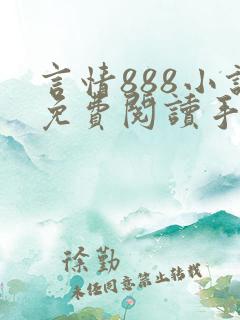 言情888小說
免費閱讀手
徐勤
未經同意禁止轉載